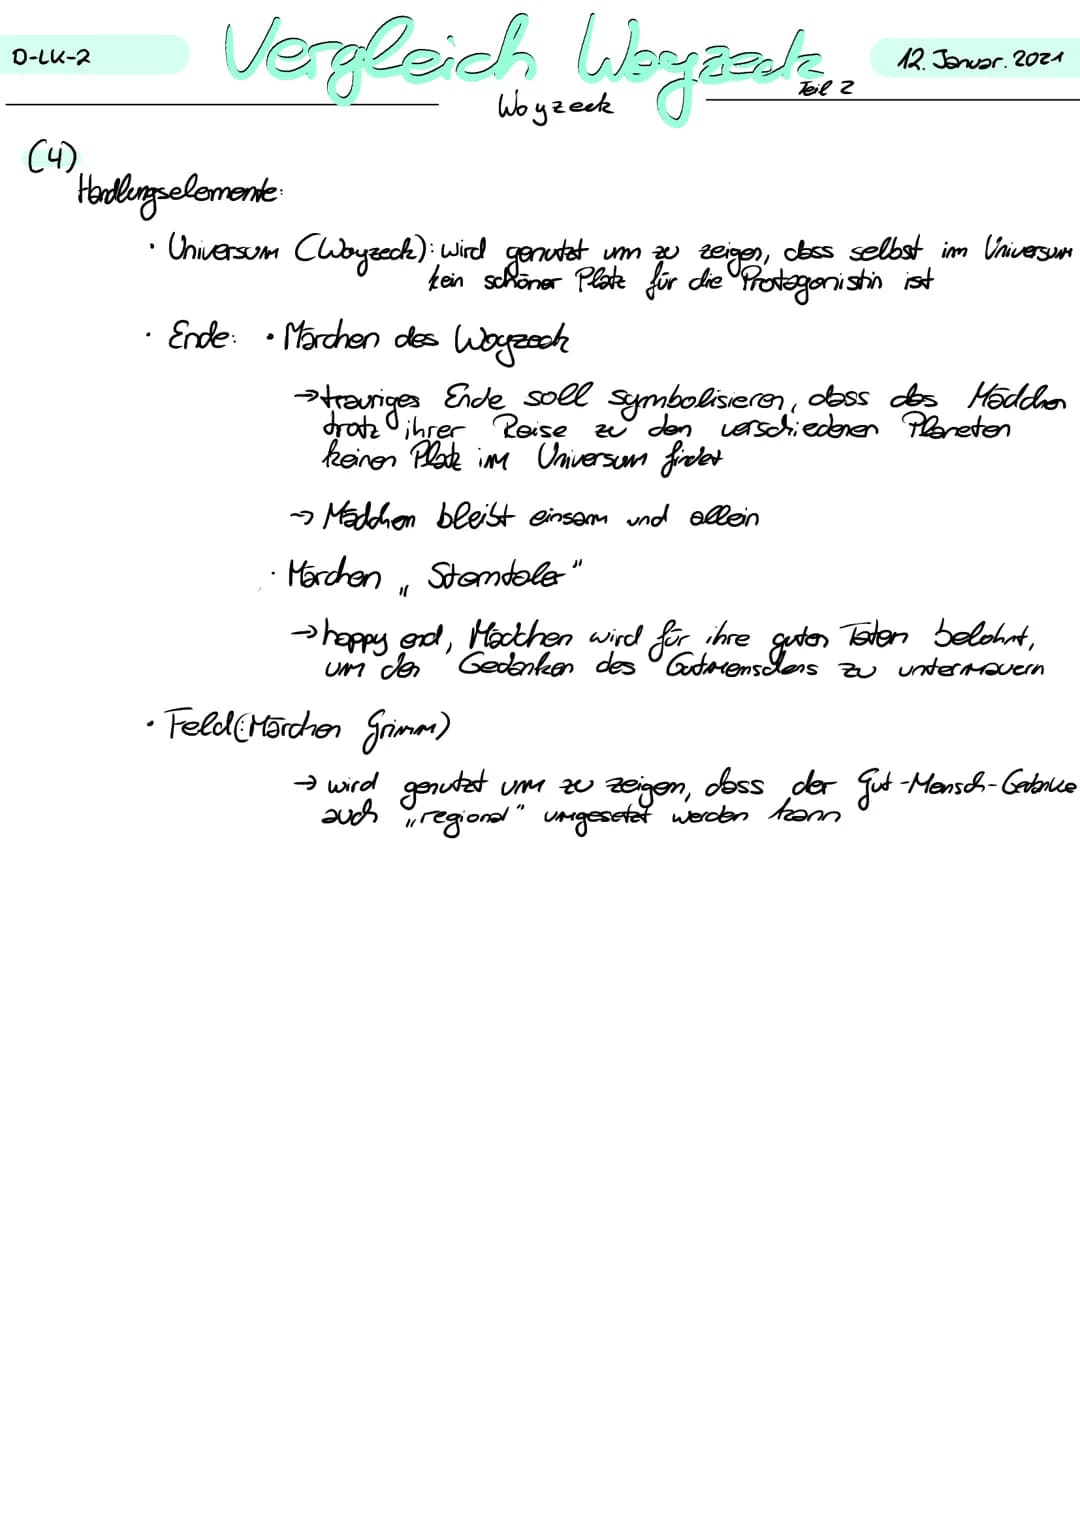 D-LK-2
Vergleich Woyzeck
12. Januar. 2021
Teil 2
Woyzeck
(4)
Handlungselemente:
• Universum (Woyzeck): wird genutzt um zu zeigen, dass selbst im Universum
kein schöner Platz für die Protagonistin ist
• Ende: • Märchen des Woyzeck
→ trauriges Ende soll symbolisieren, dass das Mädchen
trotz ihrer Reise zu den verschiedenen Planeten
keinen Platz im Universum findet
→ Mädchen bleibt einsam und allein
• Märchen „Sterntaler"
→ happy end, Mädchen wird für ihre guten Taten belohnt,
um den Gedanken des Gutmenschens zu untermauern
• Feld (Märchen Grimm)
→ wird genutzt um zu zeigen, dass der Gut-Mensch-Gedanke
auch „regional" umgesetzt werden kann